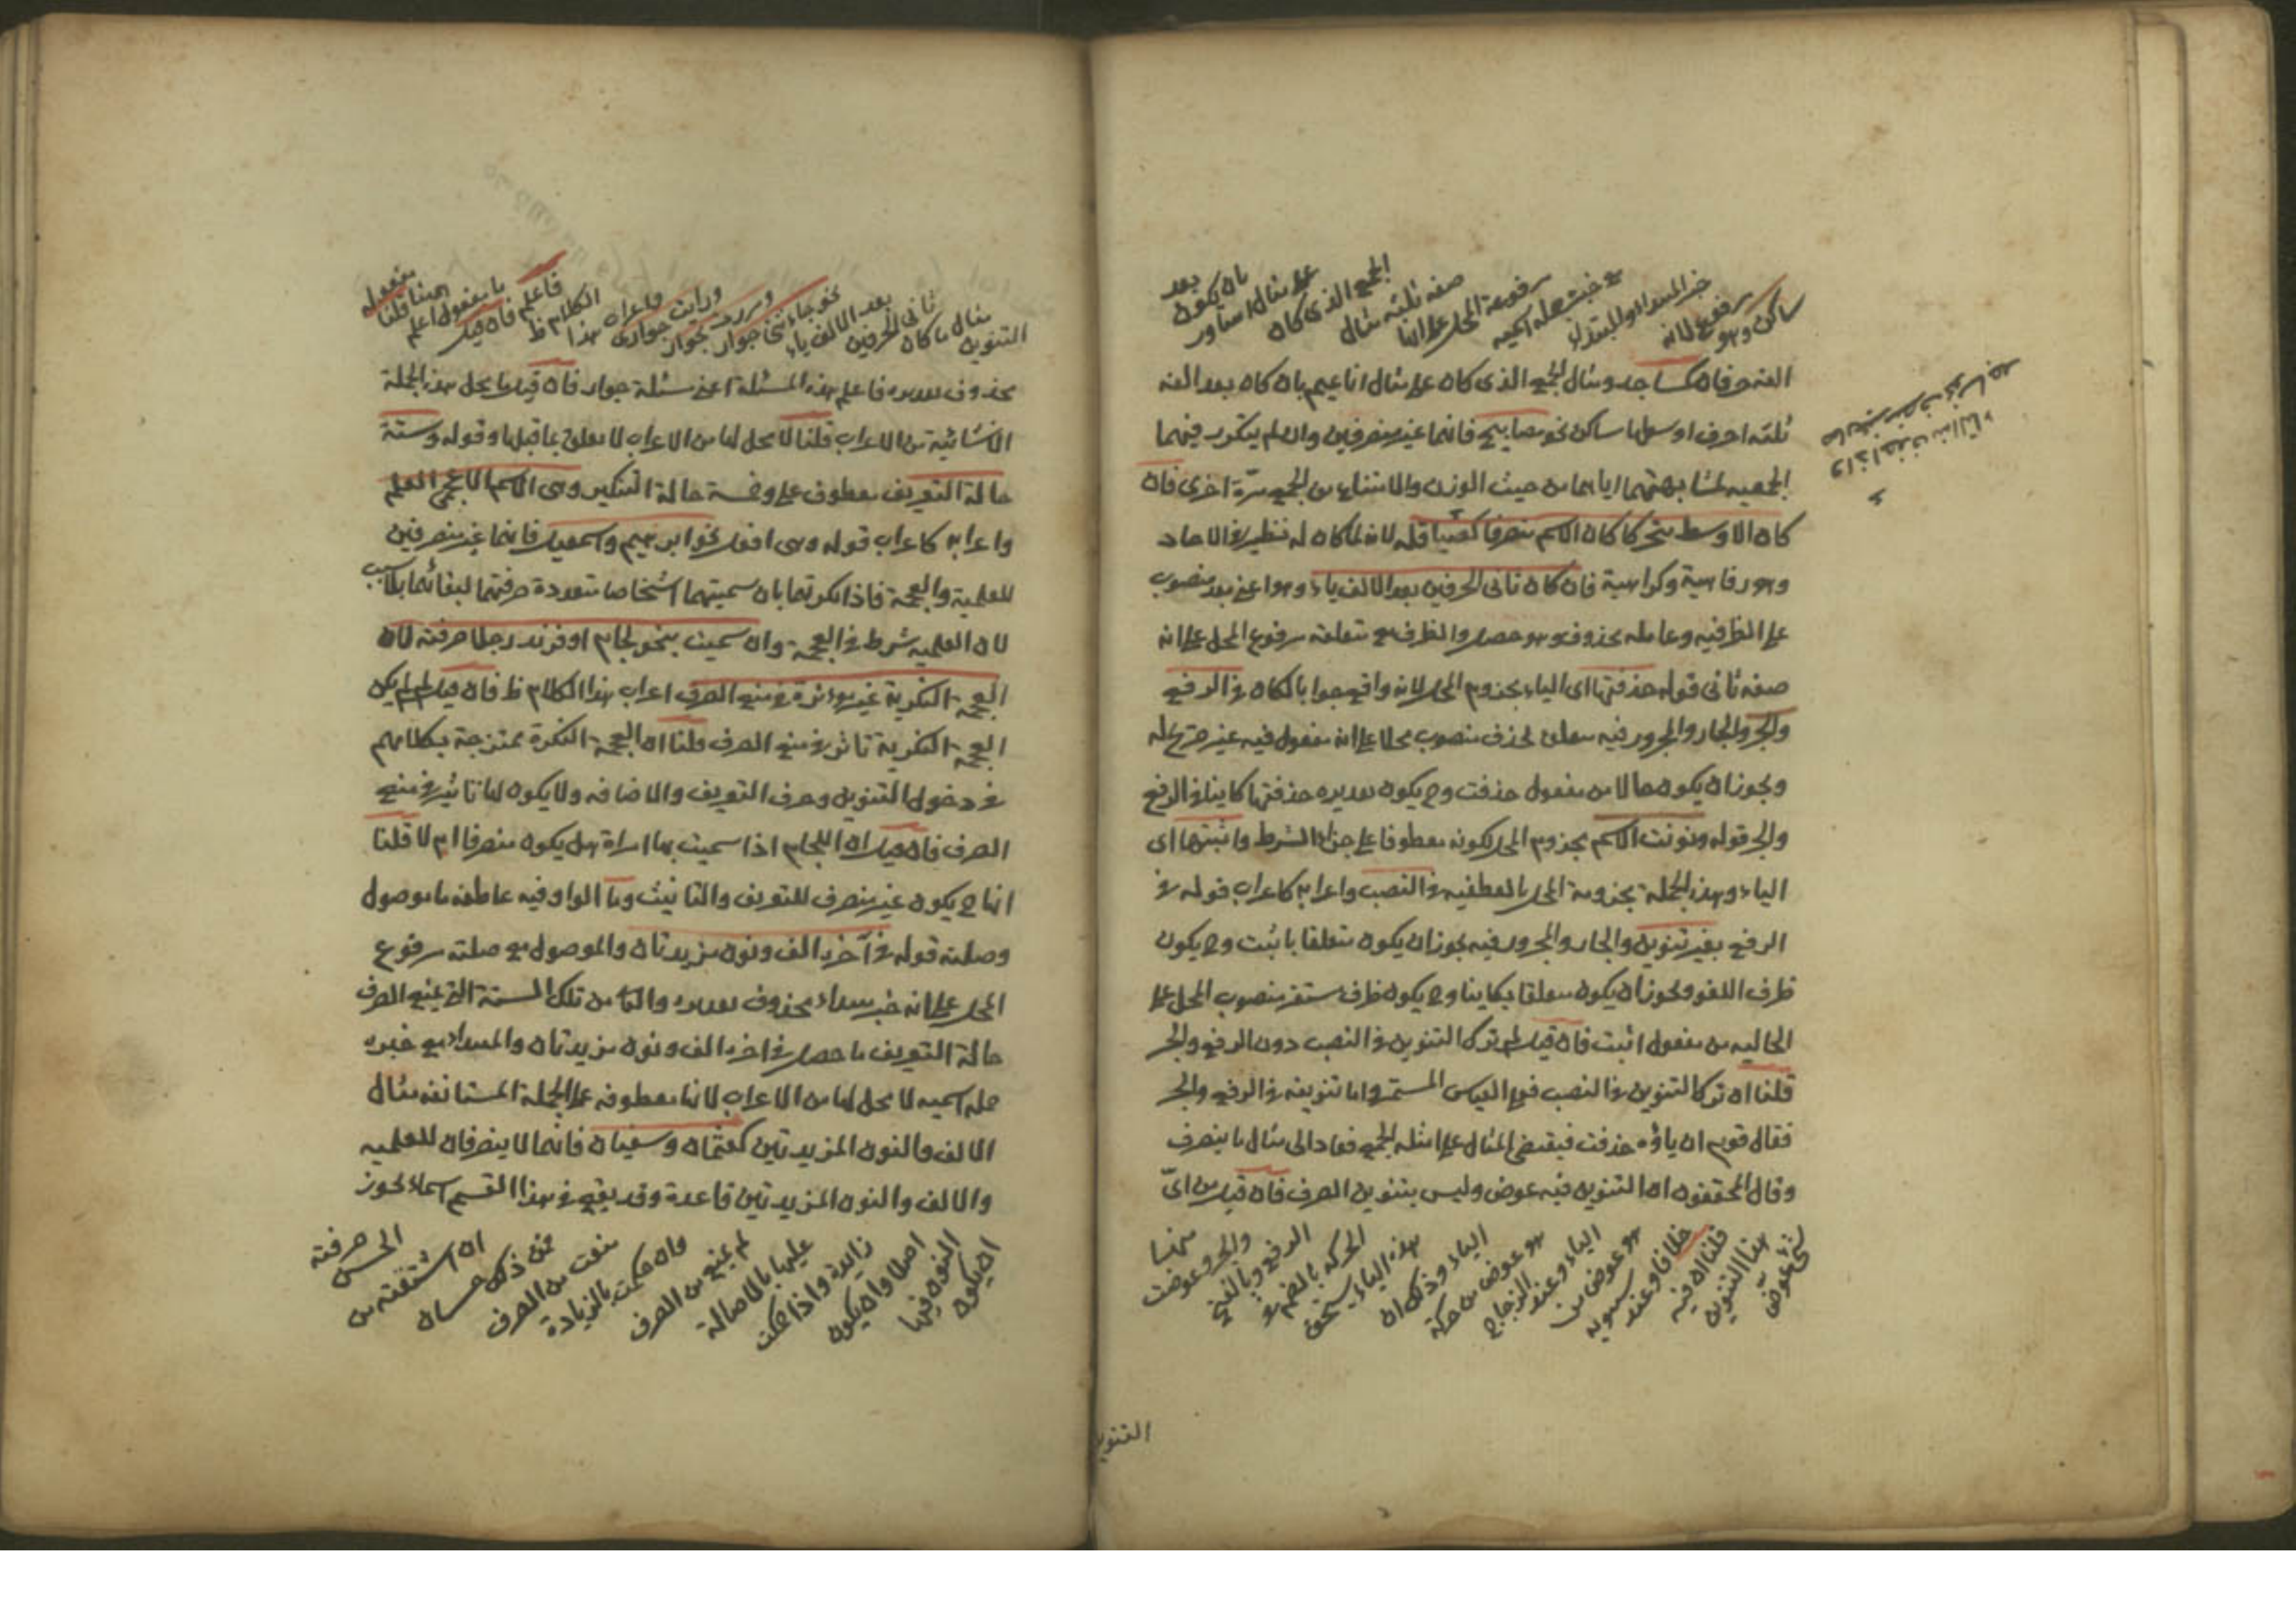 ساكن وهو مرفوع لانه
خبر المبتدأ والمبتدأ
مع خبره جملة اسمية
مرفوعة المحل على انها
صفة ثلثة مثال
الجمع الذي كان
على مثال اساور
بان يكون بعد
الفه حرفان كمساجد ومثال الجمع الذي كان على مثال اناعيم بان كان بعد الفه
ثلثة احرف اوسطها ساكن نحو مصابيح فانهما غير منصرفين وان لم يتكرر فيهما
الجمعية لمشابهتهما اياهما من حيث الوزن والامتناع من الجمع مرة اخرى فان
كان الاوسط متحركا كان الاسم منصرفا كصياقلة لانه لما كان له نظير في الاحاد
وهو رفاهية وكراهية فان كان ثاني الحرفين بعد الالف ياء وهو اعني بعد منصوب
على الظرفية وعامله محذوف وهو حصل والظرف مع متعلقه مرفوع المحل على انه
صفة ثاني قوله حذفتها اى الياء مجزوم المحل لانه واقع جوابا لكان في الرفع
والجر والجار والمجرور فيه متعلق لحذف منصوب محلا على انه مفعول فيه غير صريح له
ويجوز ان يكون حالا من مفعول حذفت وح يكون تقديره حذفتها كاينا في الرفع
والجر قوله ونونت الاسم مجزوم المحل لكونه معطوفا على جزاء الشرط واثبتها اى
الياء وهذه الجملة مجزومة المحل بالعطفية في النصب واعرابه كاعراب قوله في
الرفع بغير تنوين والجار والمجرور فيه يجوز ان يكون متعلقا باثبت وح يكون
ظرف اللغو ويجوز ان يكون متعلقا بكاينا وح يكون ظرف مستقر منصوب المحل على
الحالية من مفعول اثبت فان قيل لم ترك التنوين في النصب دون الرفع والجر
قلنا ان ترك التنوين في النصب فهو القياس المستمر واما تنوينه في الرفع والجر
فقال قوم ان ياؤه حذفت فبقي المثال على امثلة الجمع فعاد الى مثال ما ينصرف
وقال المحققون ان التنوين فيه عوض وليس بتنوين الصرف فان قيل من اىّ
شئ عوّض
هذا التنوين
قلنا ان فيه
خلافا وعند سيبويه
هو عوض من
الياء وعند الزجاج
هو عوض من حركة
الياء وذلك ان
هذه الياء يستحق
الحركة بالضم في
الرفع وبالفتح
والجر وعوضت
منها
واذا حذفت منه التاء
صار غير منصرف نحو مساجد
التنوين
التنوين
مثال ما كان
ثاني الحرفين
بعد الالف ياء
نحو جاءتني جوار
ومررت بجوار
ورايت جوارى
واعراب هذا
الكلام ظ
فاعلم فان قيل
ما مفعول اعلم
ههنا قلنا
مفعوله
محذوف تقديره فاعلم هذه المسئلة اعني مسئلة جوار فان قيل ما محل هذه الجملة
الانشائية من الاعراب قلنا لا محل لها من الاعراب لا تعلق بما قبلها وقوله وستة
حالة التعريف معطوف على وخمسة حالة التنكير وهى الاسم الاعجمى العلم
واعرابه كاعراب قوله وهى افعل نحو ابرهيم واسمعيل فانهما غير منصرفين
للعلمية والعجمة فاذا نكرتهما بان سميتهما اشخاصا متعددة صرفتهما لبقائهما بلا سبب
لان العلمية شرط في العجمة وان سميت بنحو لجام او فرند رجلا صرفته لان
العجمة النكرية غير مؤثرة في منع الصرف اعراب هذا الكلام ظ فان قيل لم لم يكن
العجمة النكرية تاثر في منع الصرف قلنا ان العجمة النكرة ممتزجة بكلامهم
في دخول التنوين وحرف التعريف والاضافه ولا يكون لها تاثير في منع
الصرف فان قيل ان اللجام اذا سميت بها امراة هل يكون منصرفا ام لا قلنا
انها ح يكون غير منصرف للتعريف والتانيث وما الواو فيه عاطفة ما موصول
وصلته قوله في آخره الف ونون مزيدتان والموصول مع صلته مرفوع
المحل على انه خبر مبتداء محذوف تقديره والثالث من تلك الستة التي يمنع الصرف
حالة التعريف ما حصل في اخره الف ونون مزيدتان والمبتداء مع خبره
جملة اسمية لا محل لها من الاعراب لانها معطوفة على الجملة المستانفة مثال
الالف والنون المزيدتين كعثمان وسفيان فانهما لا ينصرفان للعلمية
والالف والنون المزيدتين قاعدة وقد يقع في هذا القسم اسماء يجوز
ان يكون
النون فيها
اصلا وان يكون
زايدة واذا حكمت
عليها بالاصالة
لم يمنع من الصرف
وان حكمت بالزيادة
منعت من الصرف
فمن ذلك حسان
ان اشتققته من
الحسن صرفته